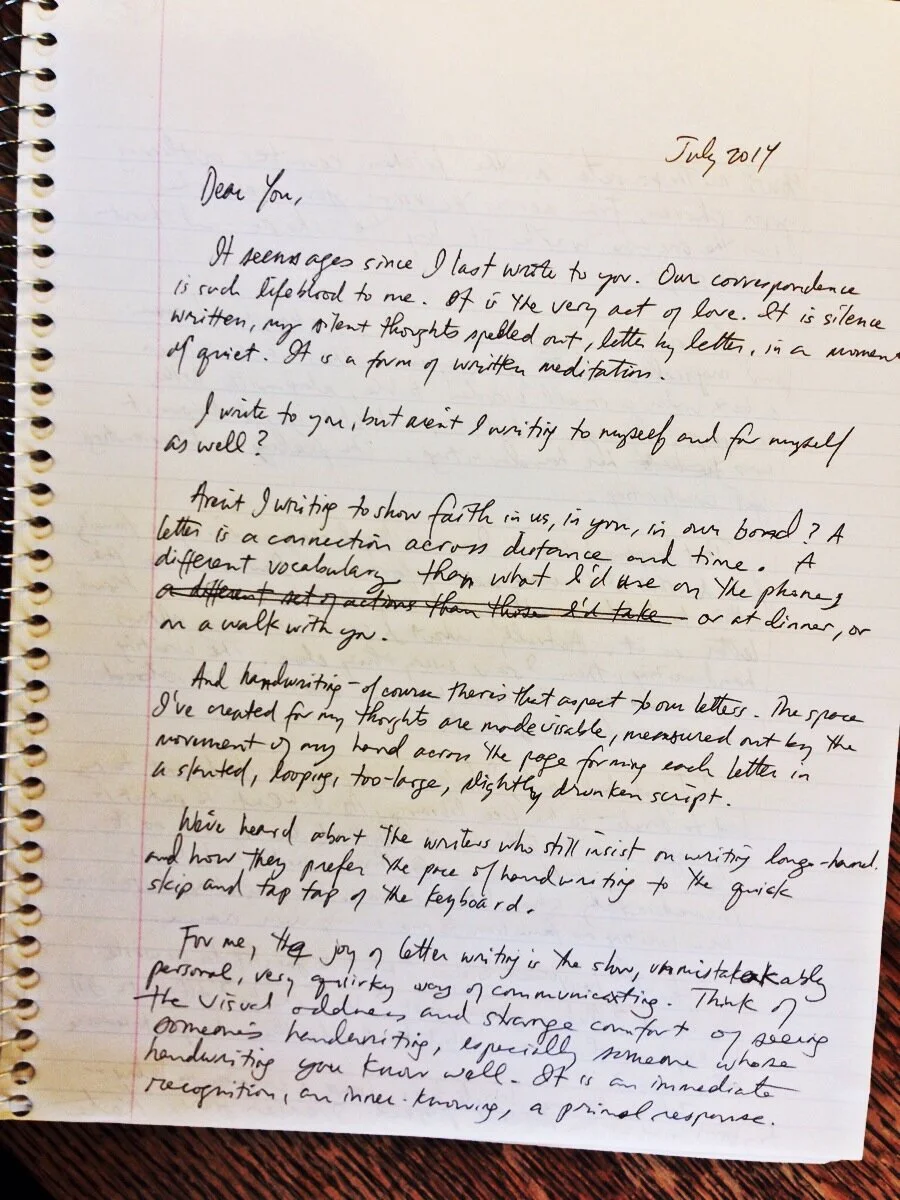 July 2014
Dear You,
It seems ages since I last wrote to you. Our correspondence
is such lifeblood to me. It is the very act of love. It is silence
written, my silent thoughts spelled out, letter by letter, in a moment
of quiet. It is a form of written meditation.
I write to you, but aren't I writing to myself and for myself
as well?
Aren't I writing to show faith in us, in you, in our bond? A
letter is a connection across distance and time. A
different vocabulary than what I'd use on the phone,
a different set of actions than those I'd take or at dinner, or
on a walk with you.
And handwriting - of course there's that aspect to our letters. The space
I've created for my thoughts are made visable, measured out by the
movement of my hand across the page forming each letter in
a slanted, looping, too-large, slightly drunken script.
We've heard about the writers who still insist on writing long-hand.
and how they prefer the pace of handwriting to the quick
skip and tap tap of the keyboard.
For me, the joy of letter writing is the slow, unmistakeakably
personal, very quirky way of communicating. Think of
the visual oddness and strange comfort of seeing
someone's handwriting, especially someone whose
handwriting you know well. It is an immediate
recognition, an inner-knowing, a primal response.